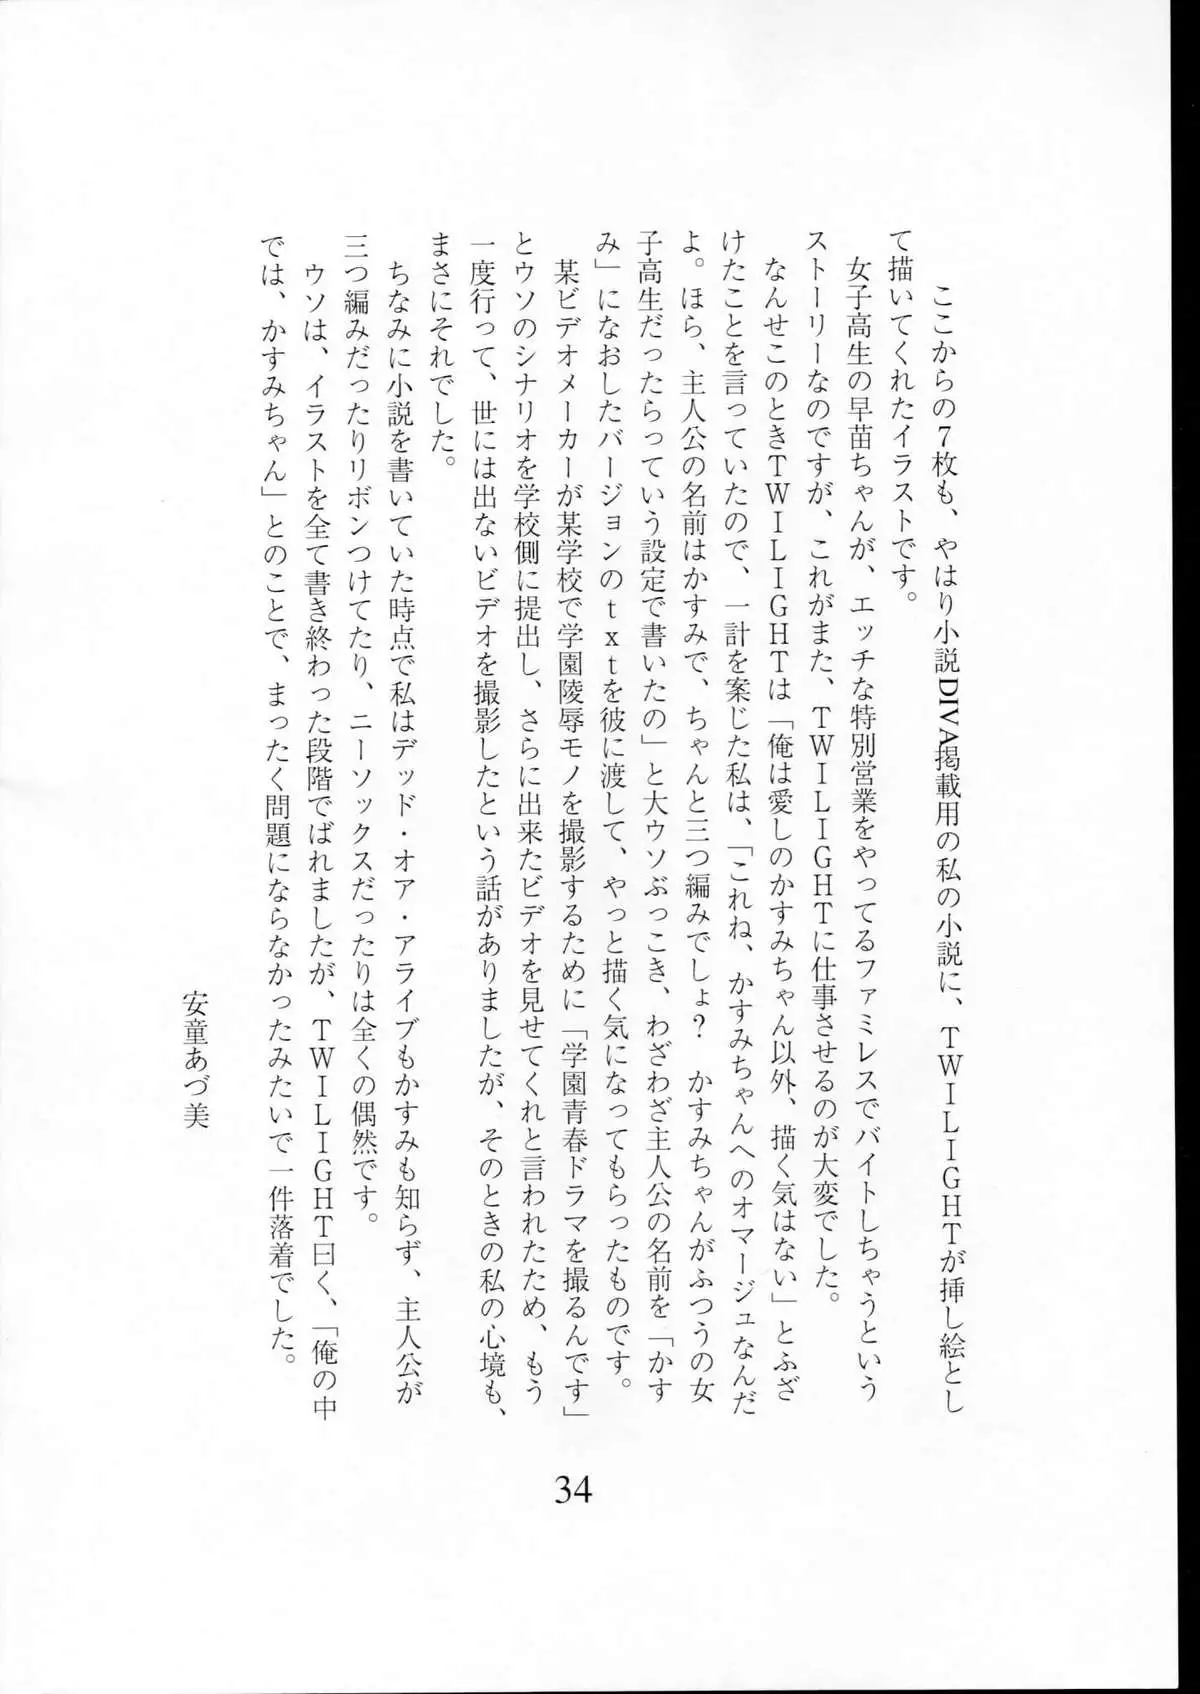 ここからの7枚も、やはり小説DIVA掲載用の私の小説に、TWILIGHTが挿し絵とし
て描いてくれたイラストです。
女子高生の早苗ちゃんが、エッチな特別営業をやってるファミレスでバイトしちゃうという
ストーリーなのですが、これがまた、TWILIGHTに仕事させるのが大変でした。
なんせこのときTWILIGHTは「俺は愛しのかすみちゃん以外、描く気はない」とふざ
けたことを言っていたので、一計を案じた私は、「これね、かすみちゃんへのオマージュなんだ
よ。ほら、主人公の名前はかすみで、ちゃんと三つ編みでしょ？　かすみちゃんがふつうの女
子高生だったらっていう設定で書いたの」と大ウソぶっこき、わざわざ主人公の名前を「かす
み」になおしたバージョンのtxtを彼に渡して、やっと描く気になってもらったものです。
某ビデオメーカーが某学校で学園陵辱モノを撮影するために「学園青春ドラマを撮るんです」
とウソのシナリオを学校側に提出し、さらに出来たビデオを見せてくれと言われたため、もう
一度行って、世には出ないビデオを撮影したという話がありましたが、そのときの私の心境も、
まさにそれでした。
ちなみに小説を書いていた時点で私はデッド・オア・アライブもかすみも知らず、主人公が
三つ編みだったりリボンつけてたり、ニーソックスだったりは全くの偶然です。
ウソは、イラストを全て書き終わった段階でばれましたが、TWILIGHT曰く、「俺の中
では、かすみちゃん」とのことで、まったく問題にならなかったみたいで一件落着でした。
安童あづ美
34